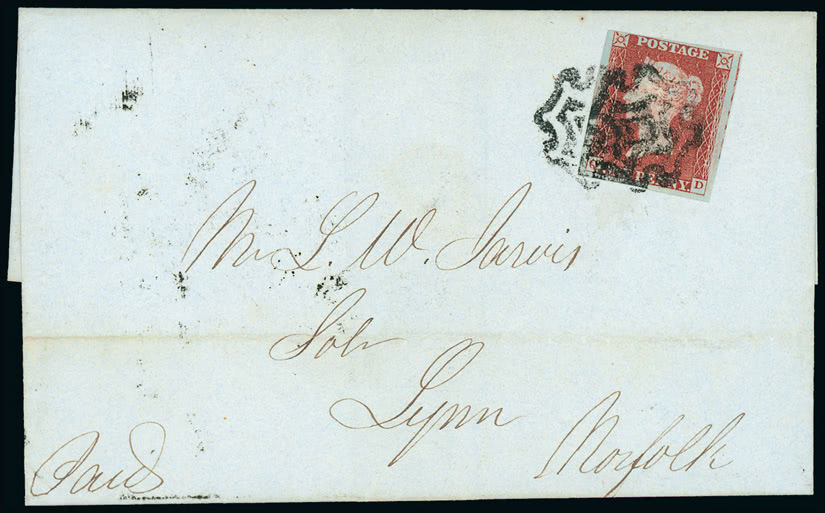 POSTAGE
PENNY.
D
Mr L. W. Jarvis
Solr
Lynn
Norfolk
Paid